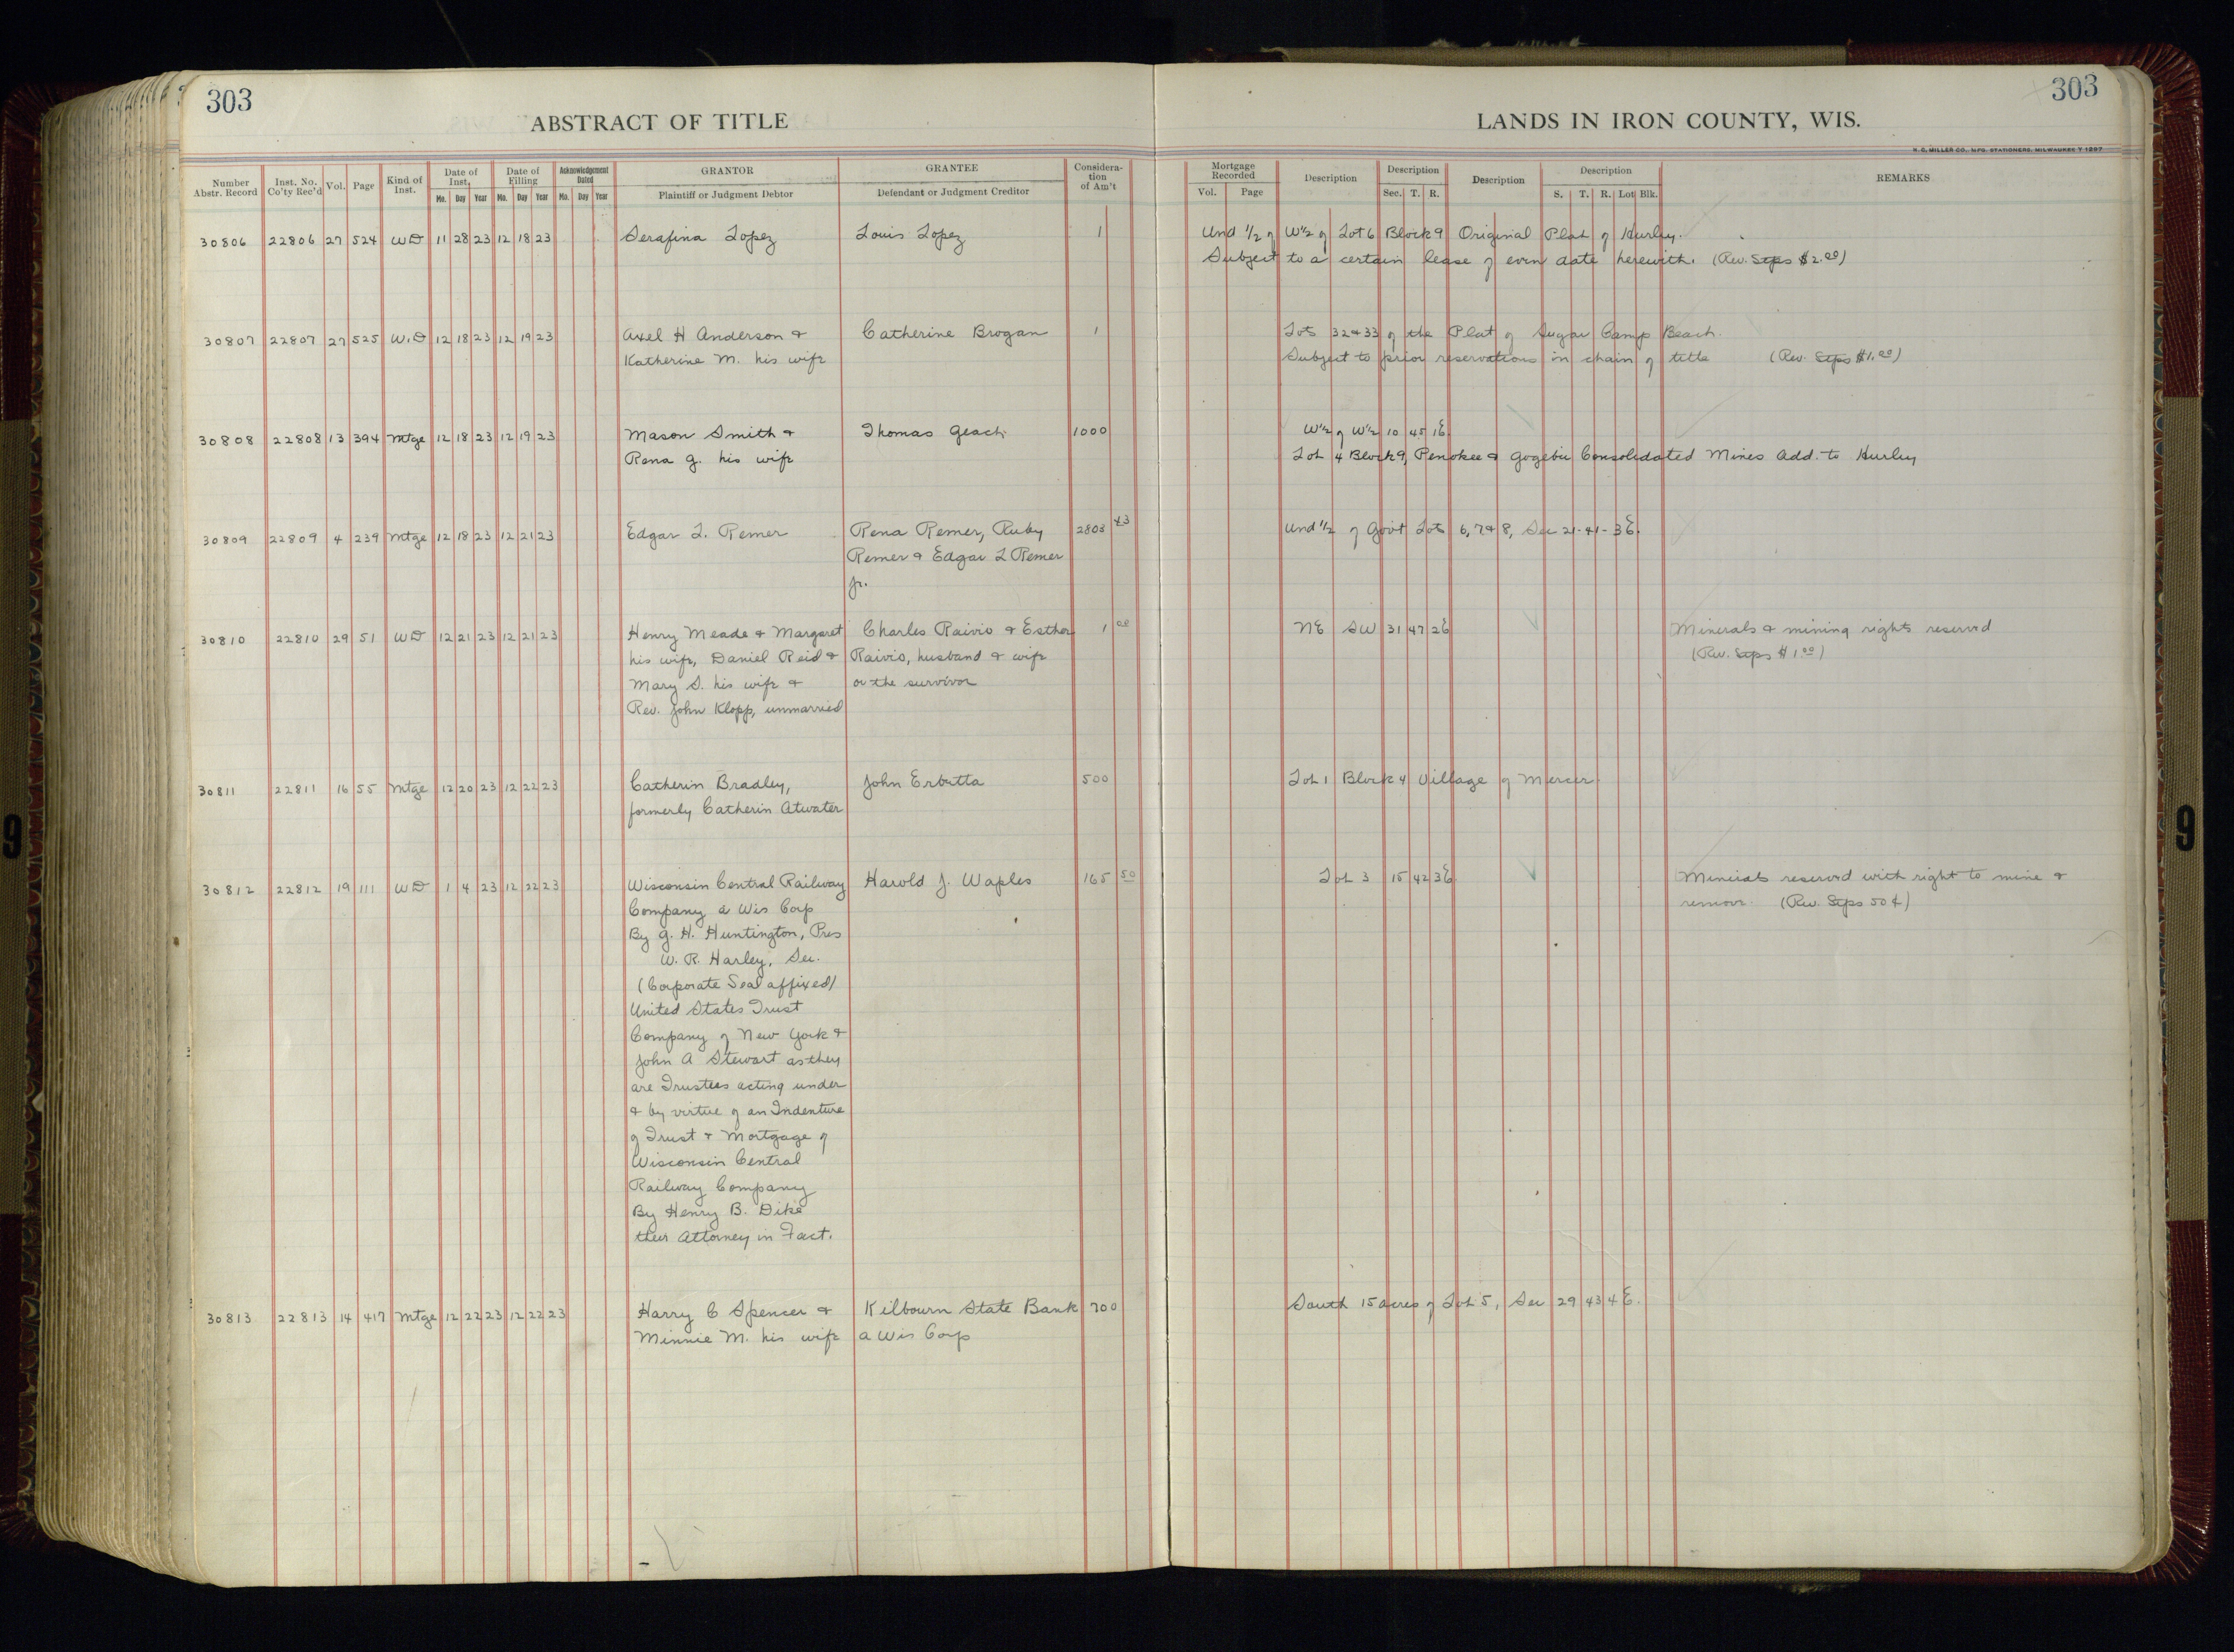 303
303
ABSTRACT OF TITLE
LANDS IN IRON COUNTY, WIS.
H. C. MILLER CO., MFG. STATIONERS, MILWAUKEE
Number Abstr. Record | Inst. No. Co'ty Rec'd | Vol. | Page | Kind of Inst. | Date of Inst. Mo. Day Year | Date of Filling Mo. Day Year | Acknowledgement Dated Mo. Day Year | GRANTOR Plaintiff or Judgment Debtor | GRANTEE Defendant or Judgment Creditor | Considera-tion of Am't | Mortgage Recorded Vol. Page | Description | Description Sec. T. R. | Description | Description S. T. R. Lot Blk. | REMARKS
30806 22806 27 524 WD 11 28 23 12 18 23 Serafina Lopez Louis Lopez 1 Und 1/2 of W1/2 of Lot 6 Block 9 Original Plat of Hurley.
Subject to a certain lease of even date herewith. (Rev. Stps $2.00)
30807 22807 27 525 W.D 12 18 23 12 19 23 Axel H Anderson & Catherine Brogan 1 Lots 32 & 33 of the Plat of Sugar Camp Beach.
Katherine M. his wife Subject to prior reservations in chain of title (Rev. Stps $1.00)
30808 22808 13 394 Mtge 12 18 23 12 19 23 Mason Smith & Thomas Geach 1000 W1/2 of W1/2 10 45 1E
Rena G. his wife Lot 4 Block 9, Penokee & Gogebic Consolidated Mines Add. to Hurley
30809 22809 4 239 Mtge 12 18 23 12 21 23 Edgar L. Remer Rena Remer, Ruby 2803 43 Und 1/2 of Govt Lots 6, 7 & 8, Sec 21-41-3E.
Remer & Edgar L Remer
Jr.
30810 22810 29 51 WD 12 21 23 12 21 23 Henry Meade & Margaret Charles Raivio & Esther 1 00 NE SW 31 47 2E Minerals & mining rights reserved
his wife, Daniel Reid & Raivio, husband & wife (Rev. Stps $1.00)
Mary S. his wife & or the survivor
Rev. John Klopp, unmarried
30811 22811 16 55 Mtge 12 20 23 12 22 23 Catherin Bradley, John Erbutta 500 Lot 1 Block 4 Village of Mercer.
formerly Catherin Atwater
30812 22812 19 111 WD 1 4 23 12 22 23 Wisconsin Central Railway Harold J. Waples 165 50 Lot 3 15 42 3E. Minerals reserved with right to mine &
Company a Wis Corp remove. (Rev. Stps 50¢)
By G. H. Huntington, Pres
W. R. Harley, Sec.
(Corporate Seal affixed)
United States Trust
Company of New York &
John A Stewart as they
are Trustees acting under
& by virtue of an Indenture
of Trust & Mortgage of
Wisconsin Central
Railway Company
By Henry B. Dike
their Attorney in Fact.
30813 22813 14 417 Mtge 12 22 23 12 22 23 Harry C Spencer & Kilbourn State Bank 700 South 15 acres of Lot 5, Sec 29 43 4E.
Minnie M. his wife a Wis Corp
9
9